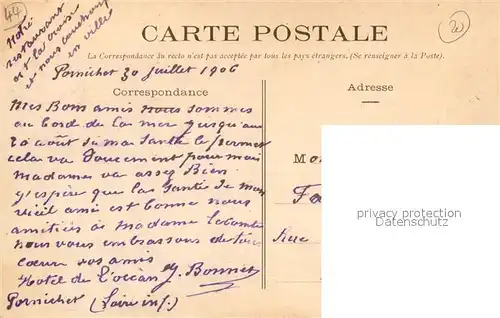 44
Notre
restaurant
est la croisé
et nous couchons
en ville
CARTE POSTALE
La Correspondance au recto n'est pas acceptée par tous les pays étrangers. (Se renseigner à la Poste).
Pornichet 30 juillet 1906
Correspondance
Adresse
Mes Bons amis nous sommes
au bord de la mer jusqu'au
20 août si ma santé le permet
cela va doucement pour moi
madame va assez Bien
j'espère que la santé de mon
vieil ami est bonne nous
amitiés à madame Lecomte
nous vous embrassons de tout
cœur vos amis
J. Bonnet
Hotel de l'océan
Pornichet (Loire inf.)
Mo
Fa
Rue
privacy protection
Datenschutz